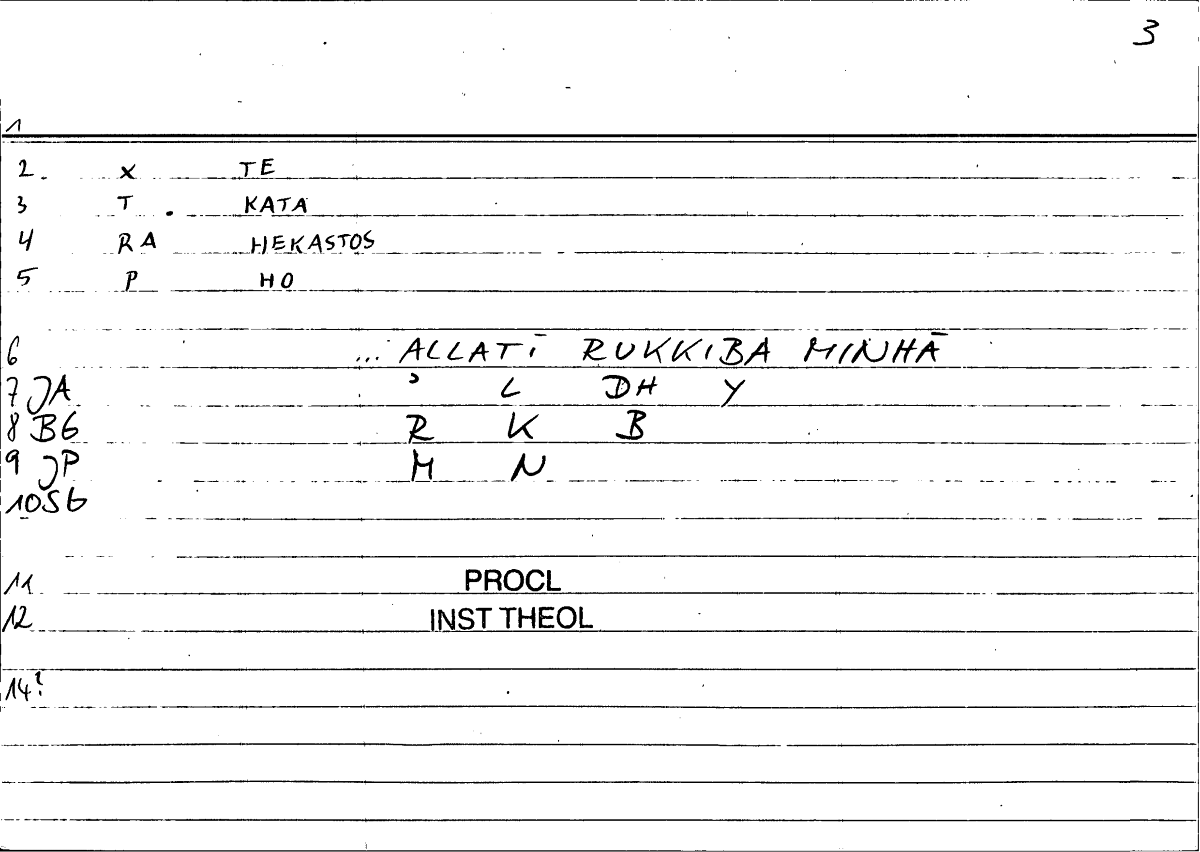 3
1
2. X TE
3 T . KATA
4 RA HEKASTOS
5 P HO
6 ... ALLATĪ RUKKIBA MINHĀ
7 JA ʾ L DH Y
8 BG R K B
9 JP M N
10 SG
11 PROCL
12 INST THEOL
14?